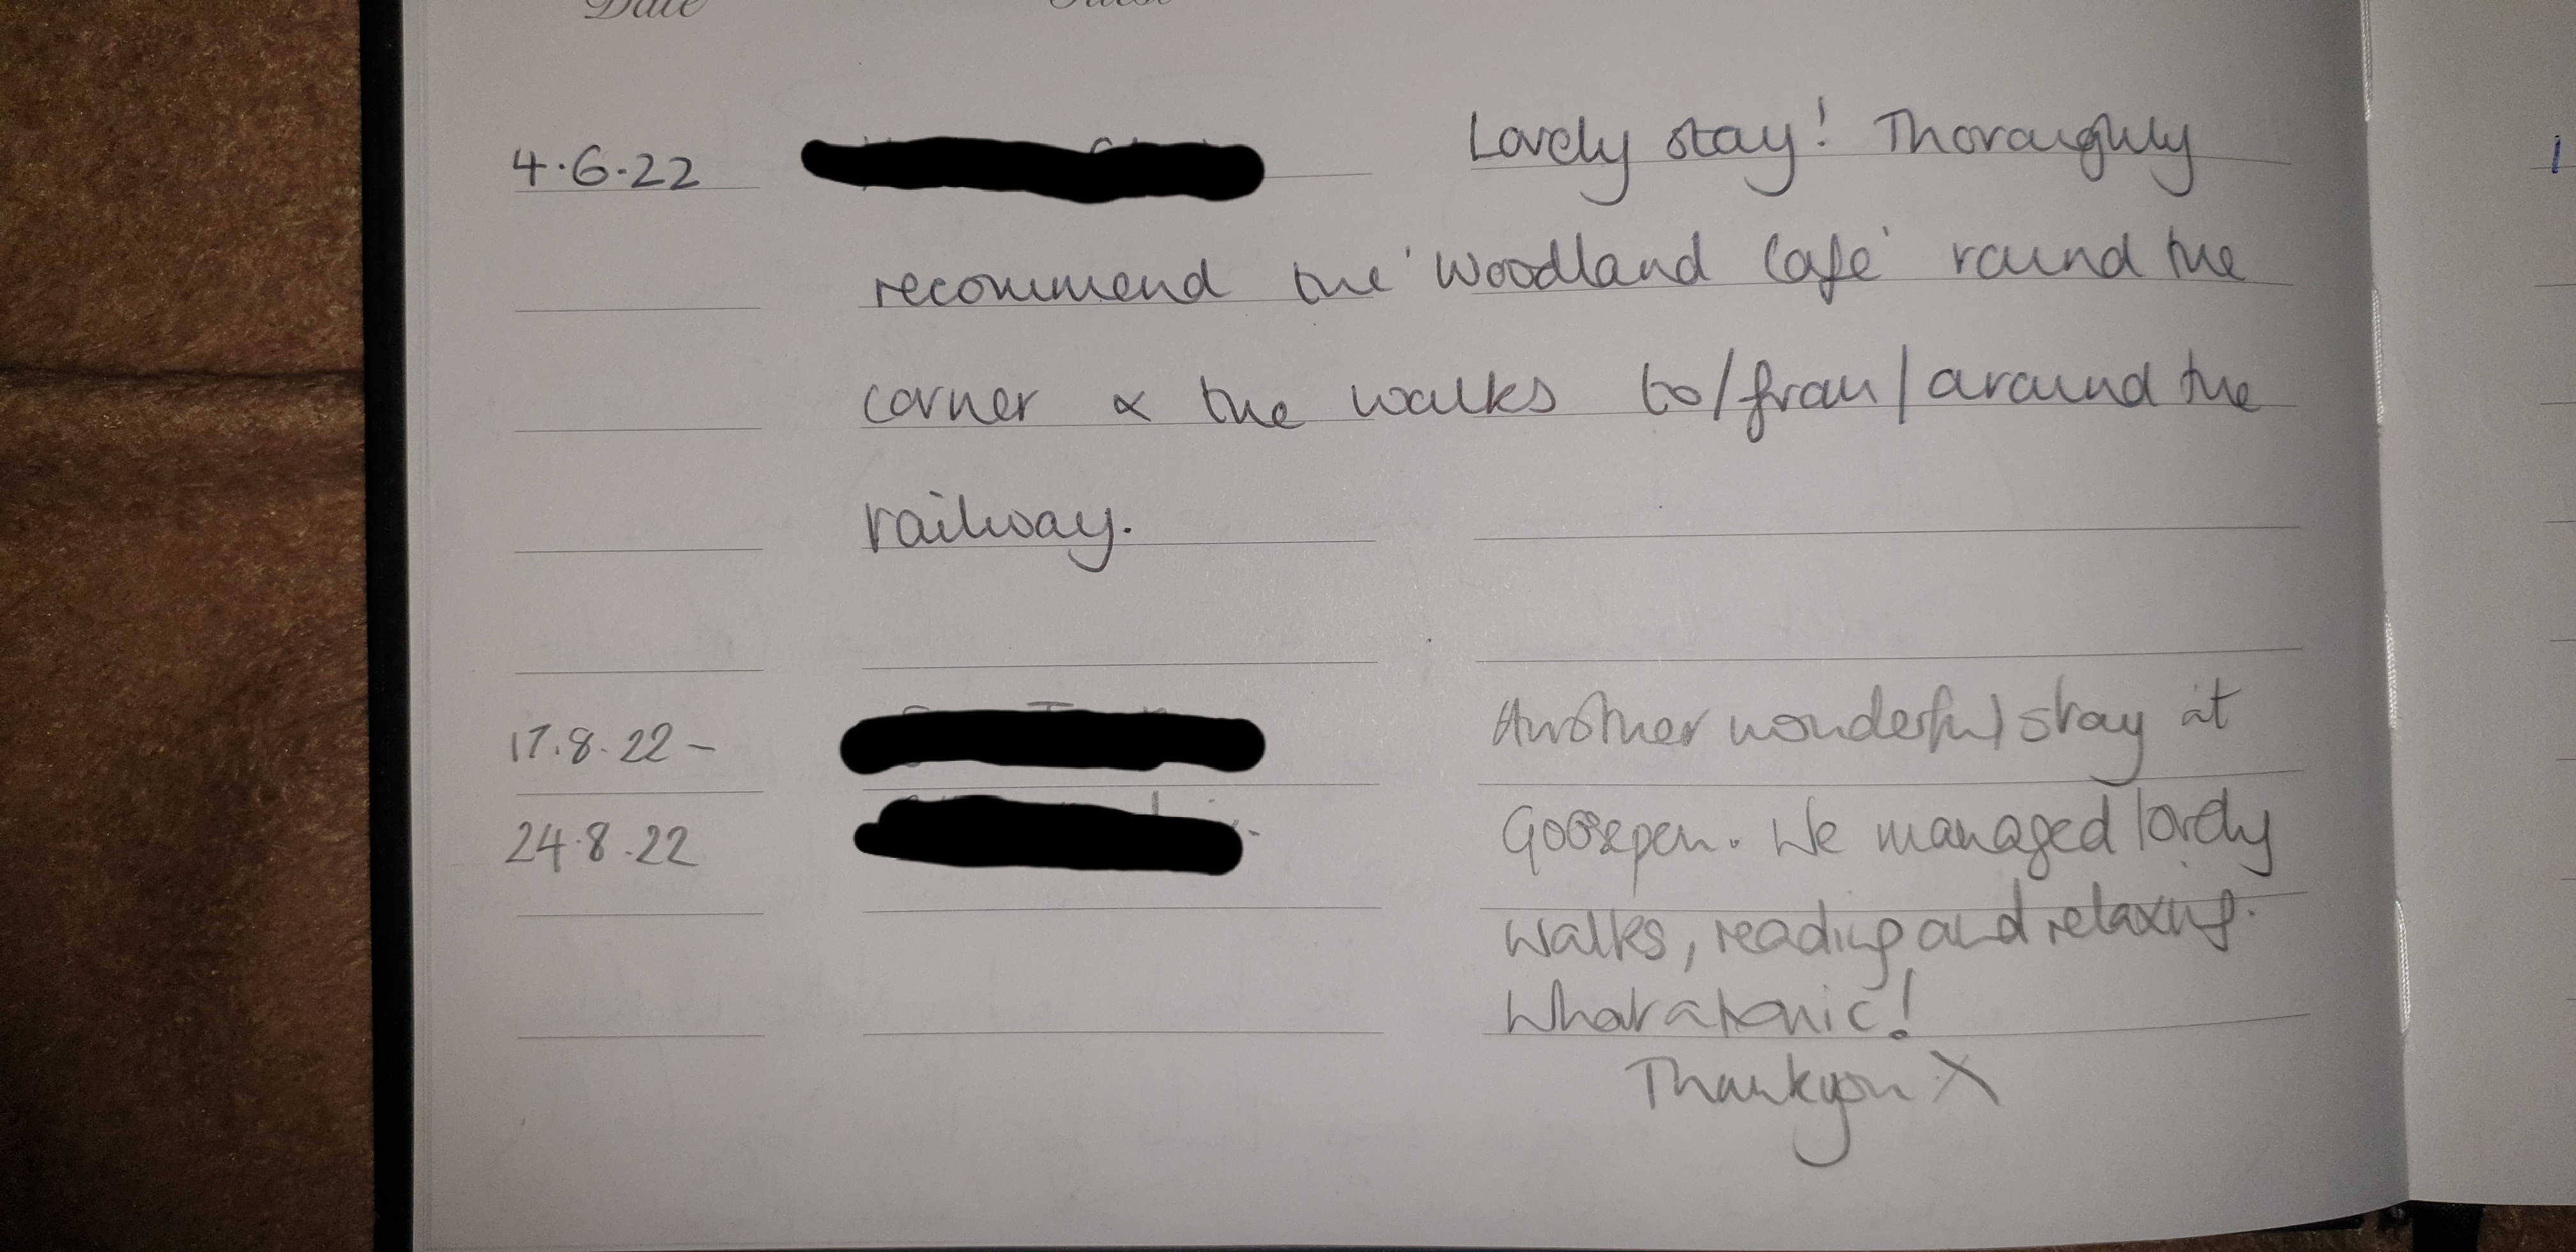 Date Guest
4.6.22 Lovely stay! Thoroughly
recommend the 'Woodland Cafe' round the
corner & the walks to/from/around the
railway.
17.8.22 – Another wonderful stay at
24.8.22 Goosepen. We managed lovely
walks, reading and relaxing.
What a tonic!
Thankyou X